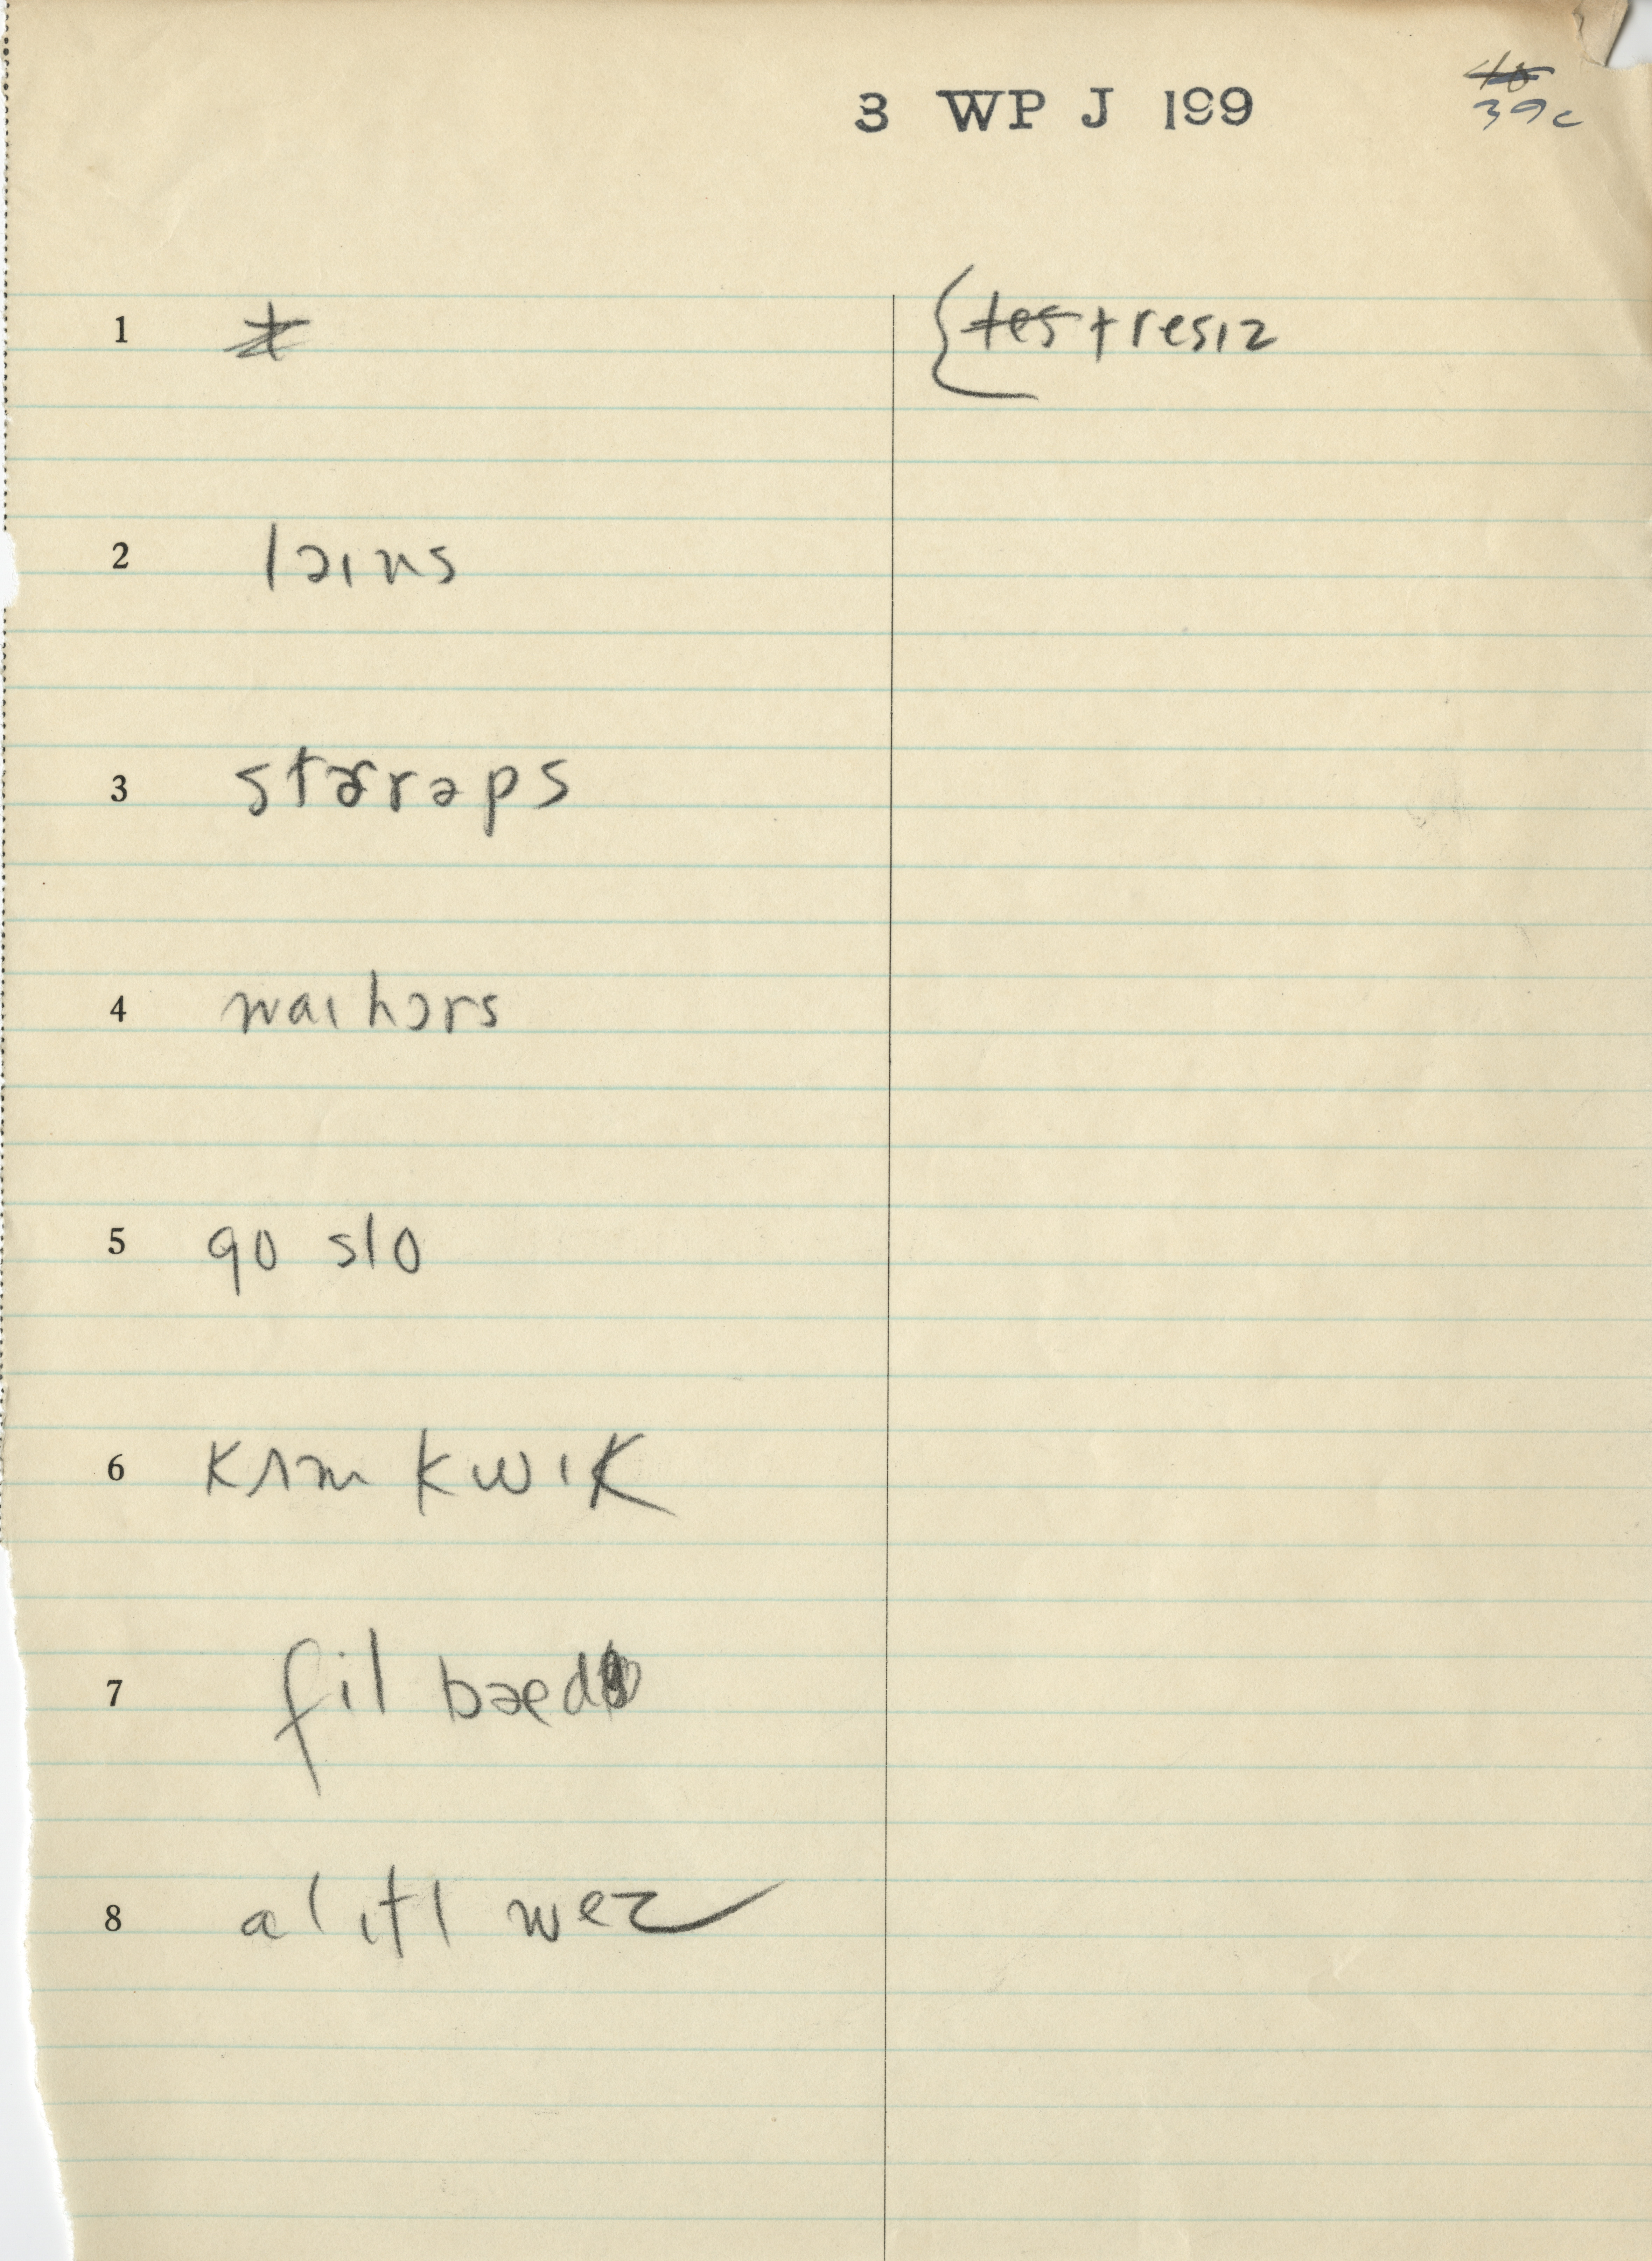 3 WP J 199
39c
1 {tresɪz
2 laɪns
3 stərəps
4 waɪ hɔrs
5 go slo
6 kʌm kwɪk
7 fil bæd
8 a lɪtl wez